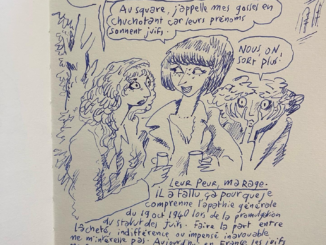 Au square, j'appelle mes gosses en
chuchotant car leurs prénoms
sonnent juifs.
NOUS ON
SORT PLUS!
Leur peur, ma rage.
il a fallu ça pour que je
comprenne l'apathie générale
du 19 oct 1940 lors de la promulgation
du statut des juifs. Faire la part entre
lâcheté, indifférence ou impensé inavouable
ne m'intéresse pas. Aujourd'hui en France les juifs